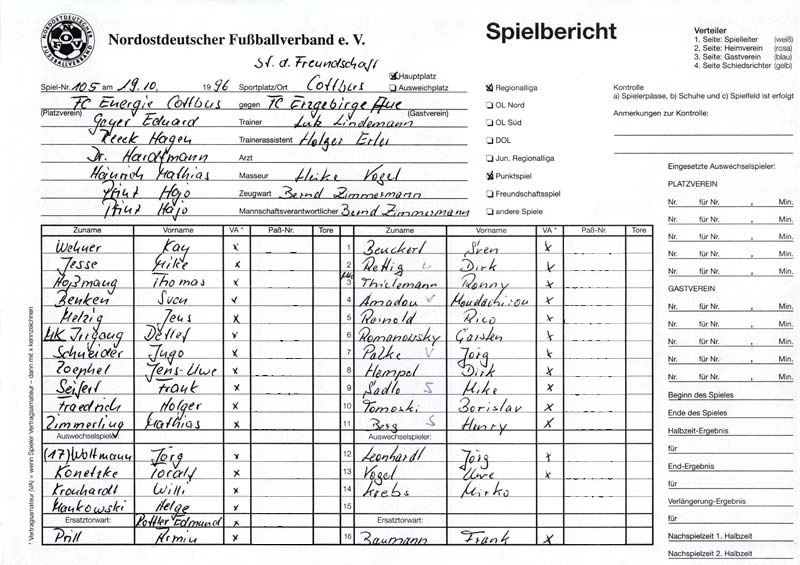 NORDOSTDEUTSCHER FUSSBALLVERBAND
NOFV
Nordostdeutscher Fußballverband e. V.
Spielbericht
Verteiler
1. Seite: Spielleiter (weiß)
2. Seite: Heimverein (rosa)
3. Seite: Gastverein (blau)
4. Seite Schiedsrichter (gelb)
St. d. Freundschaft
Spiel-Nr. 105 am 19.10. 1996 Sportplatz/Ort Cottbus
x Hauptplatz
Ausweichplatz
FC Energie Cottbus gegen FC Erzgebirge Aue
(Platzverein) (Gastverein)
Geyer Eduard Trainer Lutz Lindemann
Reeck Hagen Trainerassistent Holger Erler
Dr. Hardtmann Arzt
Heinrich Mathias Masseur Heike Vogel
Prinz Hajo Zeugwart Bernd Zimmermann
Prinz Hajo Mannschaftsverantwortlicher Bernd Zimmermann
x Regionalliga
OL Nord
OL Süd
DOL
Jun. Regionalliga
x Punktspiel
Freundschaftsspiel
andere Spiele
Kontrolle
a) Spielerpässe, b) Schuhe und c) Spielfeld ist erfolgt
Anmerkungen zur Kontrolle:
Zuname Vorname VA * Paß-Nr. Tore Zuname Vorname VA * Paß-Nr. Tore
Wehner Kay x 1 Beuckert Sven x
Jesse Mike x 2 Rettig Dirk x
Hoßmang Thomas x MK 3 Thielemann Ronny x
Benken Sven x 4 Amadou Moudachirou x
Melzig Jens x 5 Reinold Rico x
MK Irrgang Detlef x 6 Romanowsky Carsten x
Schneider Jugo x 7 Palke Jörg x
Zoephel Jens-Uwe x 8 Hempel Dirk x
Seifert Frank x 9 Sadlo S Mike x
Fraedrich Holger x 10 Tomoski Borislav x
Zimmerling Mathias x 11 Berg S Henry x
Auswechselspieler: Auswechselspieler:
(17) Woltmann Jörg x 12 Leonhardt Jörg x
Konetzke Toralf x 13 Vogel Uwe x
Kronhardt Willi x 14 Krebs Mirko
Mankowski Helge x 15
Ersatztorwart: Rottler Edmund x Ersatztorwart:
Prill Armin x 16 Baumann Frank x
* Vertragsamateur (VA) = wenn Spieler Vertragsamateur – dann mit x kennzeichnen
Eingesetzte Auswechselspieler:
PLATZVEREIN
Nr. für Nr. , Min.
Nr. für Nr. , Min.
Nr. für Nr. , Min.
Nr. für Nr. , Min.
Nr. für Nr. , Min.
GASTVEREIN
Nr. für Nr. , Min.
Nr. für Nr. , Min.
Nr. für Nr. , Min.
Nr. für Nr. , Min.
Nr. für Nr. , Min.
Beginn des Spieles
Ende des Spieles
Halbzeit-Ergebnis
für
End-Ergebnis
für
Verlängerung-Ergebnis
für
Nachspielzeit 1. Halbzeit
Nachspielzeit 2. Halbzeit